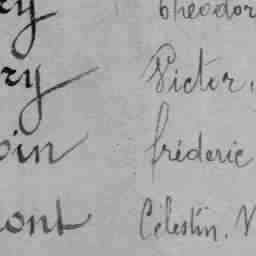 ry Théodor
ry Victor,
oin frédéric
mont Célestin. V